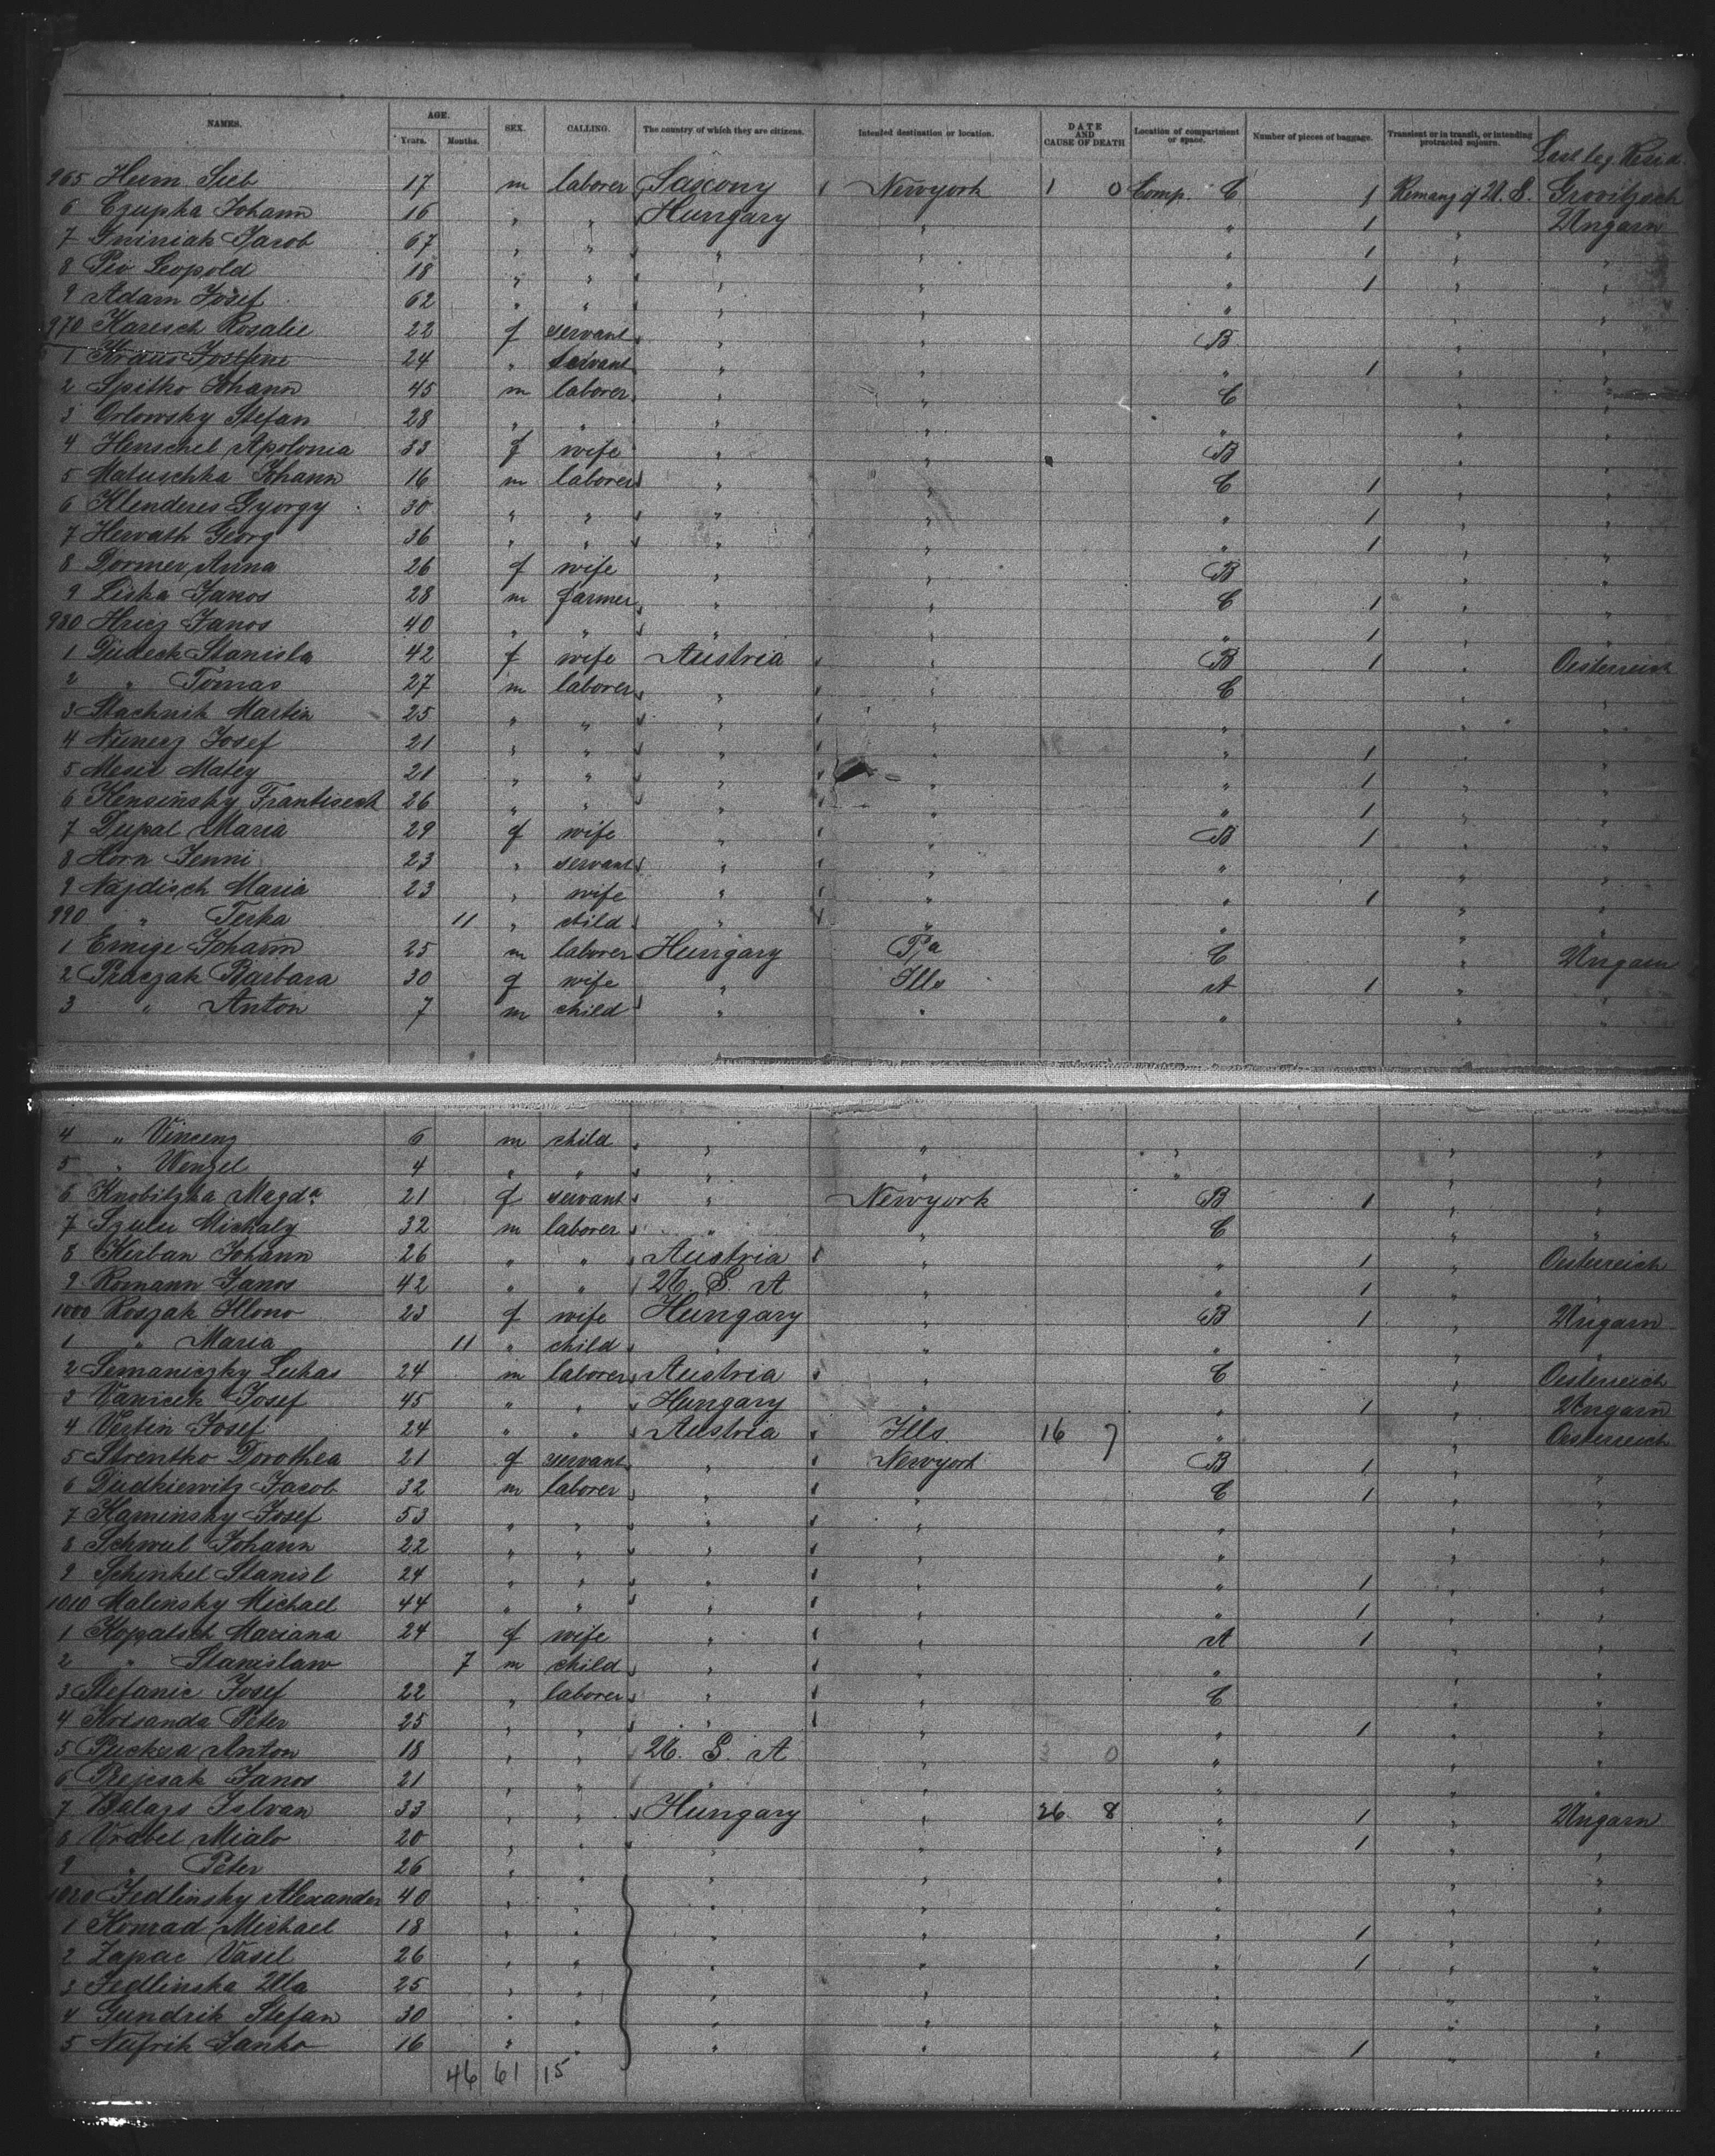 NAMES. AGE. Years. Months. SEX. CALLING. The country of which they are citizens. Intended destination or location. DATE AND CAUSE OF DEATH Location of compartment or space. Number of pieces of baggage. Transient or in transit, or intending protracted sojourn. Last leg. Resid.
965 Heim Sieb 17 m laborer Saxony Newyork 1 0 Comp. C 1 Remang of U. S. Groitzsch
6 Czupka Johann 16 " " Hungary " " 1 " Ungarn
7 Jacob 67 " " " " " 1 " "
8 Leopold 18 " " " " " 1 " "
9 Adam Josef 62 " " " " " " "
970 Karesch Rosalie 22 f servant " " B " "
1 Kraus Josefine 24 " servant " " " 1 " "
2 Spitko Johann 45 m laborer " " C " "
3 Orlowsky Stefan 28 " " " " " " "
4 Henschel Apolonia 33 f wife " " B " "
5 Matuschka Johann 16 m laborer " " C 1 " "
6 Klenderes Gyorgy 30 " " " " " 1 " "
7 Hervath Georg 36 " " " " " 1 " "
8 Dormer Anna 26 f wife " " B " "
9 Liska Janos 28 m farmer " " C 1 " "
980 Hricz Janos 40 " " " " " 1 " "
1 Dudeck Stanisla 42 f wife Austria " B 1 " Oesterreich
2 " Tomas 27 m laborer " " C " "
3 Stachnik Martin 25 " " " " " " "
4 Nunecz Josef 21 " " " " " 1 " "
5 Matey 21 " " " " " 1 " "
6 Kensinsky Frantisech 26 " " " " " 1 " "
7 Dupal Maria 29 f wife " " B 1 " "
8 Horn Jenni 23 " servant " " " " "
9 Najdisch Maria 23 " wife " " " 1 " "
990 " Terka 11 " child " " " " "
1 Ernige Johann 25 m laborer Hungary Pa C " Ungarn
2 Praczak Barbara 30 f wife " Ills A 1 " "
3 " Anton 7 m child " " " " "
4 " Vincenz 6 m child " " " " "
5 " Wenzel 4 " " " " " " "
6 Knobitzka Magda 21 f servant " Newyork B 1 " "
7 Szulu Michaly 32 m laborer " " C " "
8 Kirban Johann 26 " " Austria " " 1 " Oesterreich
9 Romann Janos 42 " " U. S. A " " 1 " "
1000 Roszak Illono 23 f wife Hungary " B 1 " Ungarn
1 " Maria 11 " child " " " " "
2 Semaniczky Lukas 24 m laborer Austria " C " Oesterreich
3 Vanicek Josef 45 " " Hungary " " 1 " Ungarn
4 Vertin Josef 24 " " Austria Ills 16 7 " " Oesterreich
5 Strentko Dorothea 21 f servant " Newyork B 1 " "
6 Dudkiewitz Jacob 32 m laborer " " C 1 " "
7 Kaminsky Josef 53 " " " " " " "
8 Schweil Johann 22 " " " " " " "
9 Schinkel Stanisl 24 " " " " " 1 " "
1010 Malinsky Michael 44 " " " " " 1 " "
1 Kopatsch Mariana 24 f wife " " A 1 " "
2 " Stanislaw 7 m child " " " " "
3 Stefanic Josef 22 " laborer " " C " "
4 Krisanda Peter 25 " " " " " 1 " "
5 Anton 18 " " U. S. A " 3 0 " " "
6 Prejcsak Janos 21 " " " " " " "
7 Balazs Istvan 33 " " Hungary " 26 8 " 1 " Ungarn
8 Vrabel Mialo 20 " " " " " 1 " "
9 " Peter 26 " " " " " " "
1020 Jedlinsky Alexander 40 " " " " " " "
1 Konrad Michael 18 " " " " " 1 " "
2 Zapac Vasil 26 " " " " " 1 " "
3 Jedlinska Ula 25 " " " " " " "
4 Gundrik Stefan 30 " " " " " " "
5 Nufrik Janko 16 " " " " " 1 " "
46 61 15